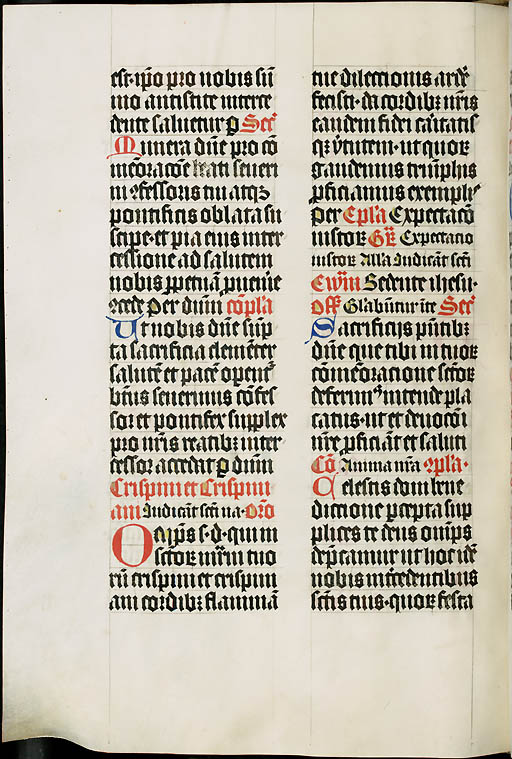 est·ip̄o pro nobis sū
mo antistite interce
dente saluetur p Sec̄
Munera dn̄e pro cō
mēorac̄oe beati seueri
ni ꝯfessoris tui atqꝫ
pontificis oblata su
scipe·et pia eius inter
cessione ad salutem
nobis ꝓuenīa ꝓuenīe
ꝯcede per dn̄m cōpl'a
Ut nobis dn̄e sup
ta sacrificia clemēter
salutē et pacē openē
btūs seuerinus cōfes
sor et pontifex supplex
pro nr̄is reatibꝫ inter
cessor accedat p dn̄m
Crispini et Crispini
ani Iudicāt sc̄ti na·oro̅
Omīps s·d·qui in
sc̄torum mr̄m tuo
rū crispini et crispini
ani cordibꝫ flammā
tue dilectionis ardē
fecisti·da cordibꝫ nr̄is
eandem fidei caritatis
qꝫ v̄tutem·ut quoꝝ
gaudemus triūphis
ꝓficiamus exemplis
per Epl'a Expectacō
iustoꝝ Gr̄ Expectacio
iustoꝝ Alla Iudicāt sc̄ti
Ewm̄ Sedente ihesu·
off Gl'abūntur in te Sec̄
Sacrificijs pn̄tibꝫ
dn̄e que tibi in tuoꝝ
cōmēoratione sc̄toꝝ
deferimꝰ intende pla
catus·ut et deuocōi
nr̄e ꝓficiāt et saluti
Cō Anima nr̄a ꝯpl'a·
Celestis doni bene
dictione ꝑcepta sup
plices te deus om̄ps
dep̄camur ut hoc idē
nobis int̄cedentibus
sc̄tis tuis·quoꝝ festa